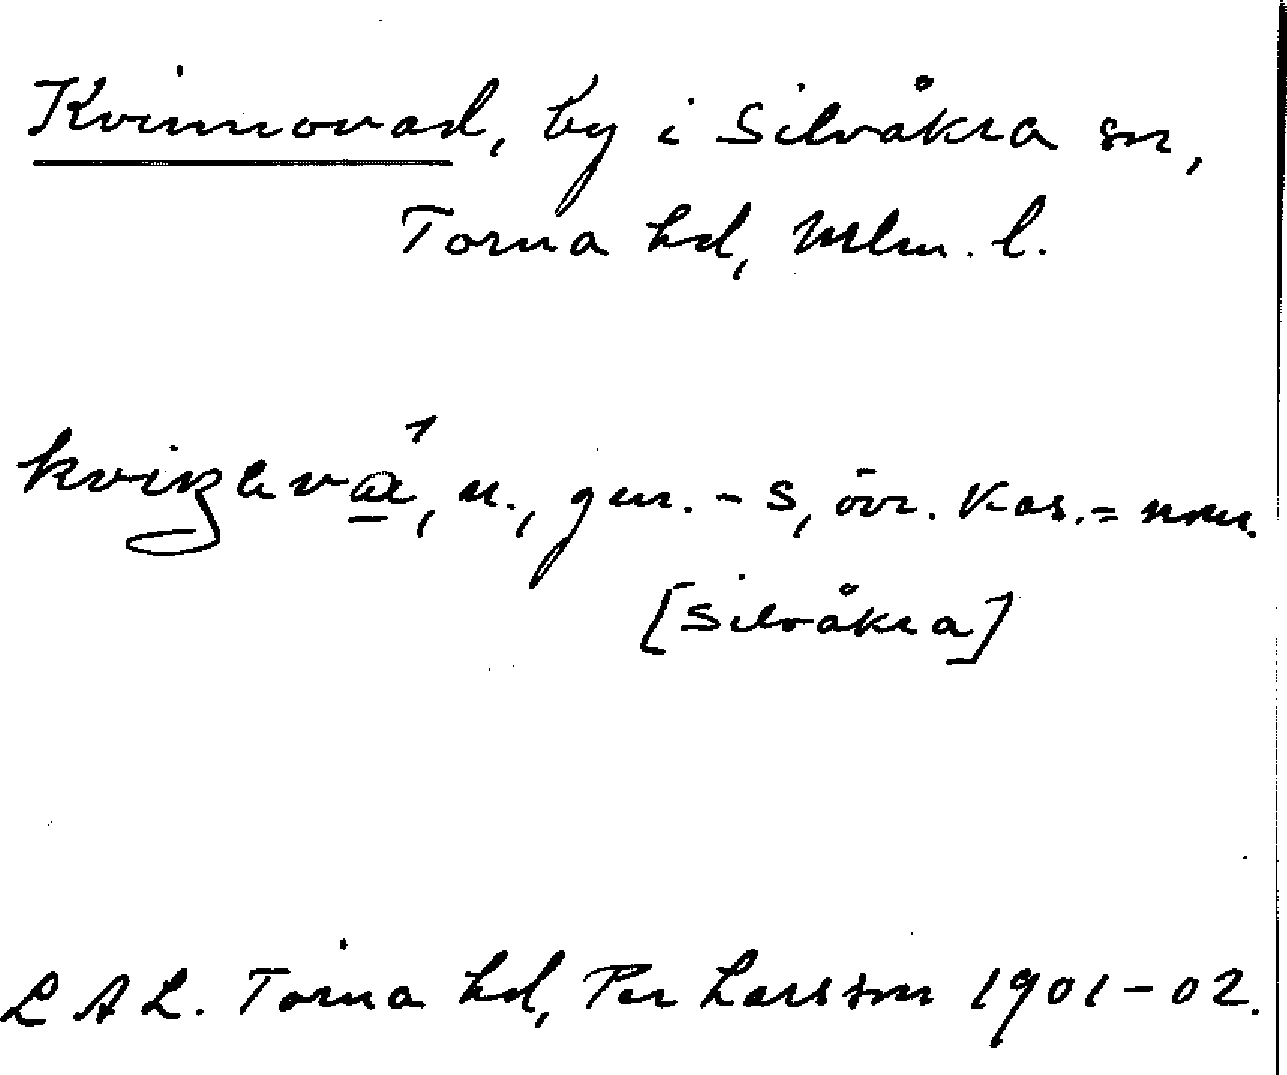 Kvinnovad, by i Silvåkra sn,
Torna hd, Mlm. l.
n., gen. -s, övr. kas. = nom.
[Silvåkra]
LAL. Torna hd, Per Larsson 1901-02.